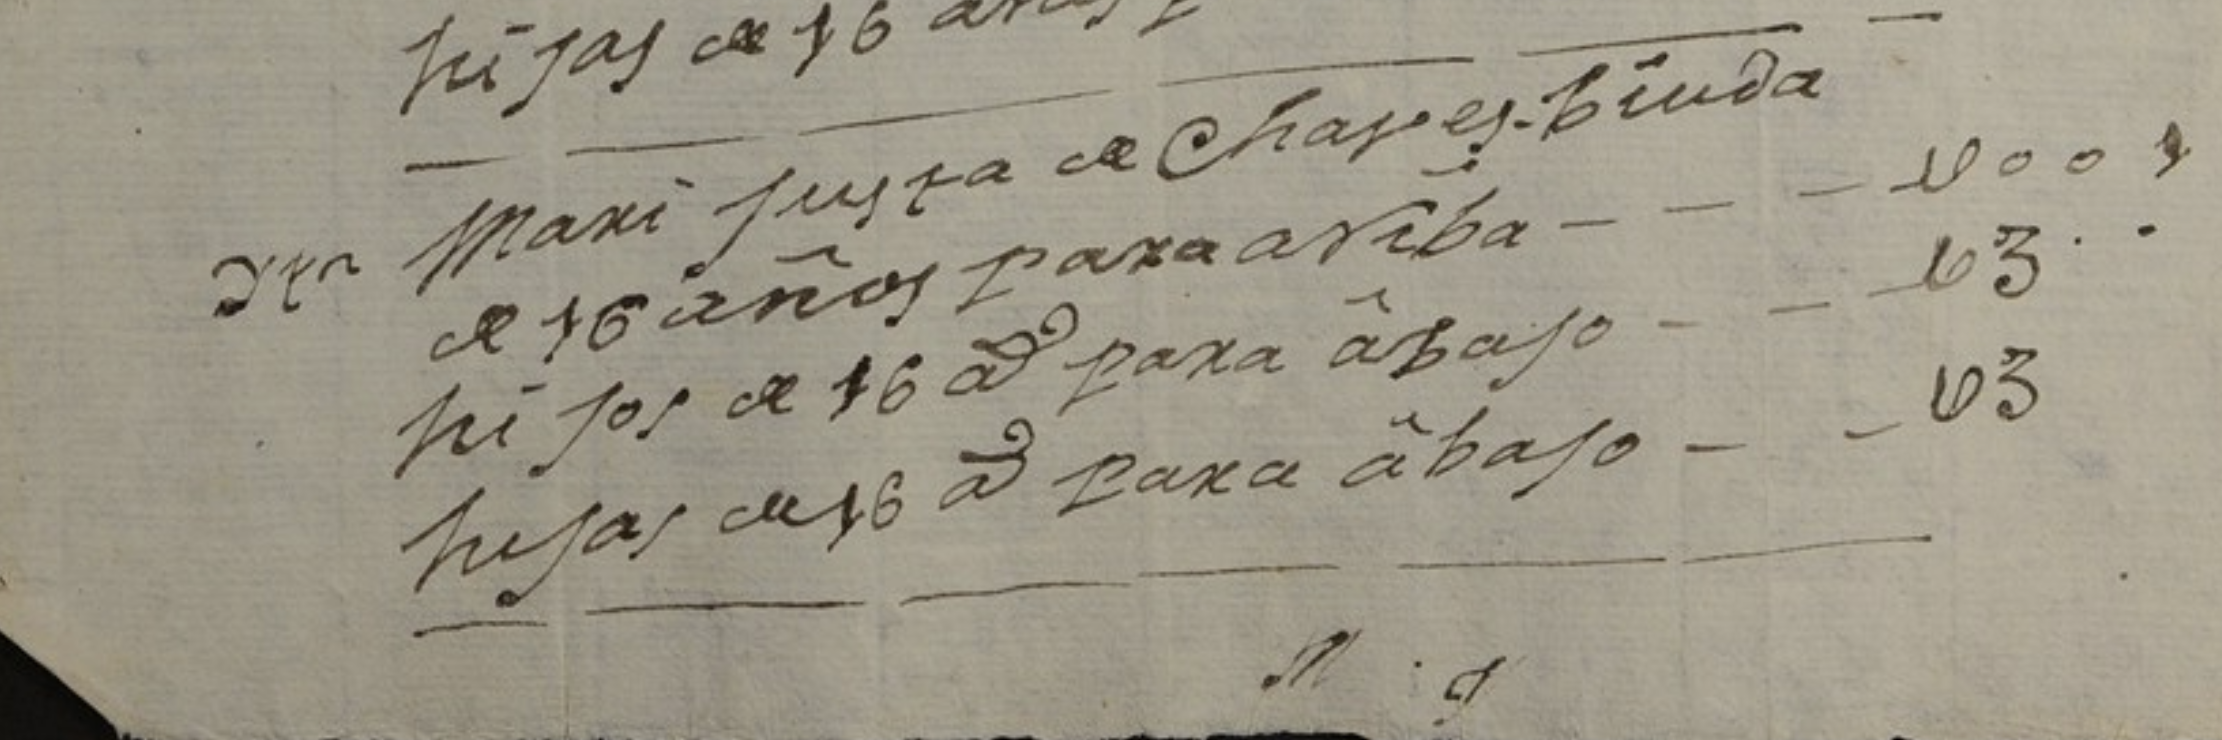 hijas de 16 años p
Mari Justa de Chaves biuda
Ytn de 16 años para arriba - - - - U001
hijos de 16 as para abajo - - - U3..
hijas de 16 as para abajo - - U3